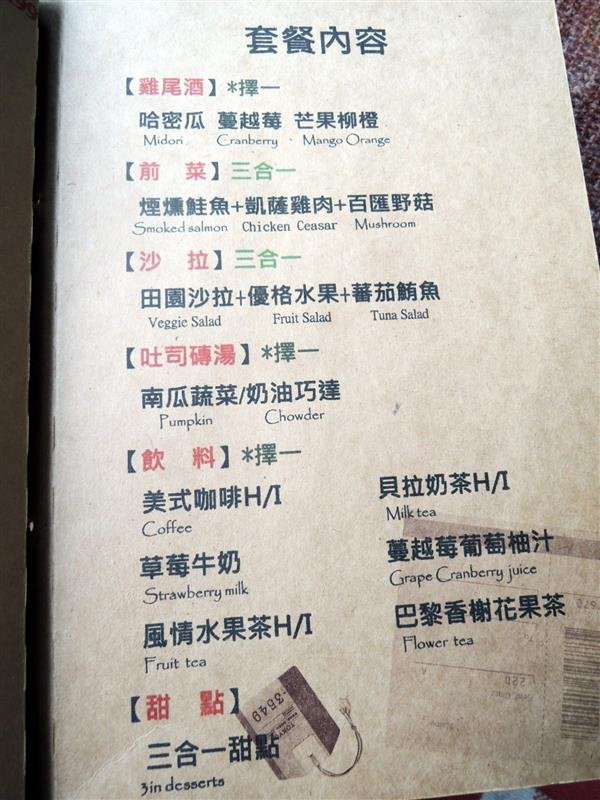 套餐內容
【雞尾酒】*擇一
哈密瓜 蔓越莓 芒果柳橙
Midori Cranberry · Mango Orange
【前 菜】三合一
煙燻鮭魚+凱薩雞肉+百匯野菇
Smoked salmon Chicken Ceasar Mushroom
【沙 拉】三合一
田園沙拉+優格水果+蕃茄鮪魚
Veggie Salad Fruit Salad Tuna Salad
【吐司磚湯】*擇一
南瓜蔬菜/奶油巧達
Pumpkin Chowder
【飲 料】*擇一
美式咖啡H/I 貝拉奶茶H/I
Coffee Milk tea
草莓牛奶 蔓越莓葡萄柚汁
Strawberry milk Grape Cranberry juice
風情水果茶H/I 巴黎香榭花果茶
Fruit tea Flower tea
【甜 點】
三合一甜點
3in desserts
-3549